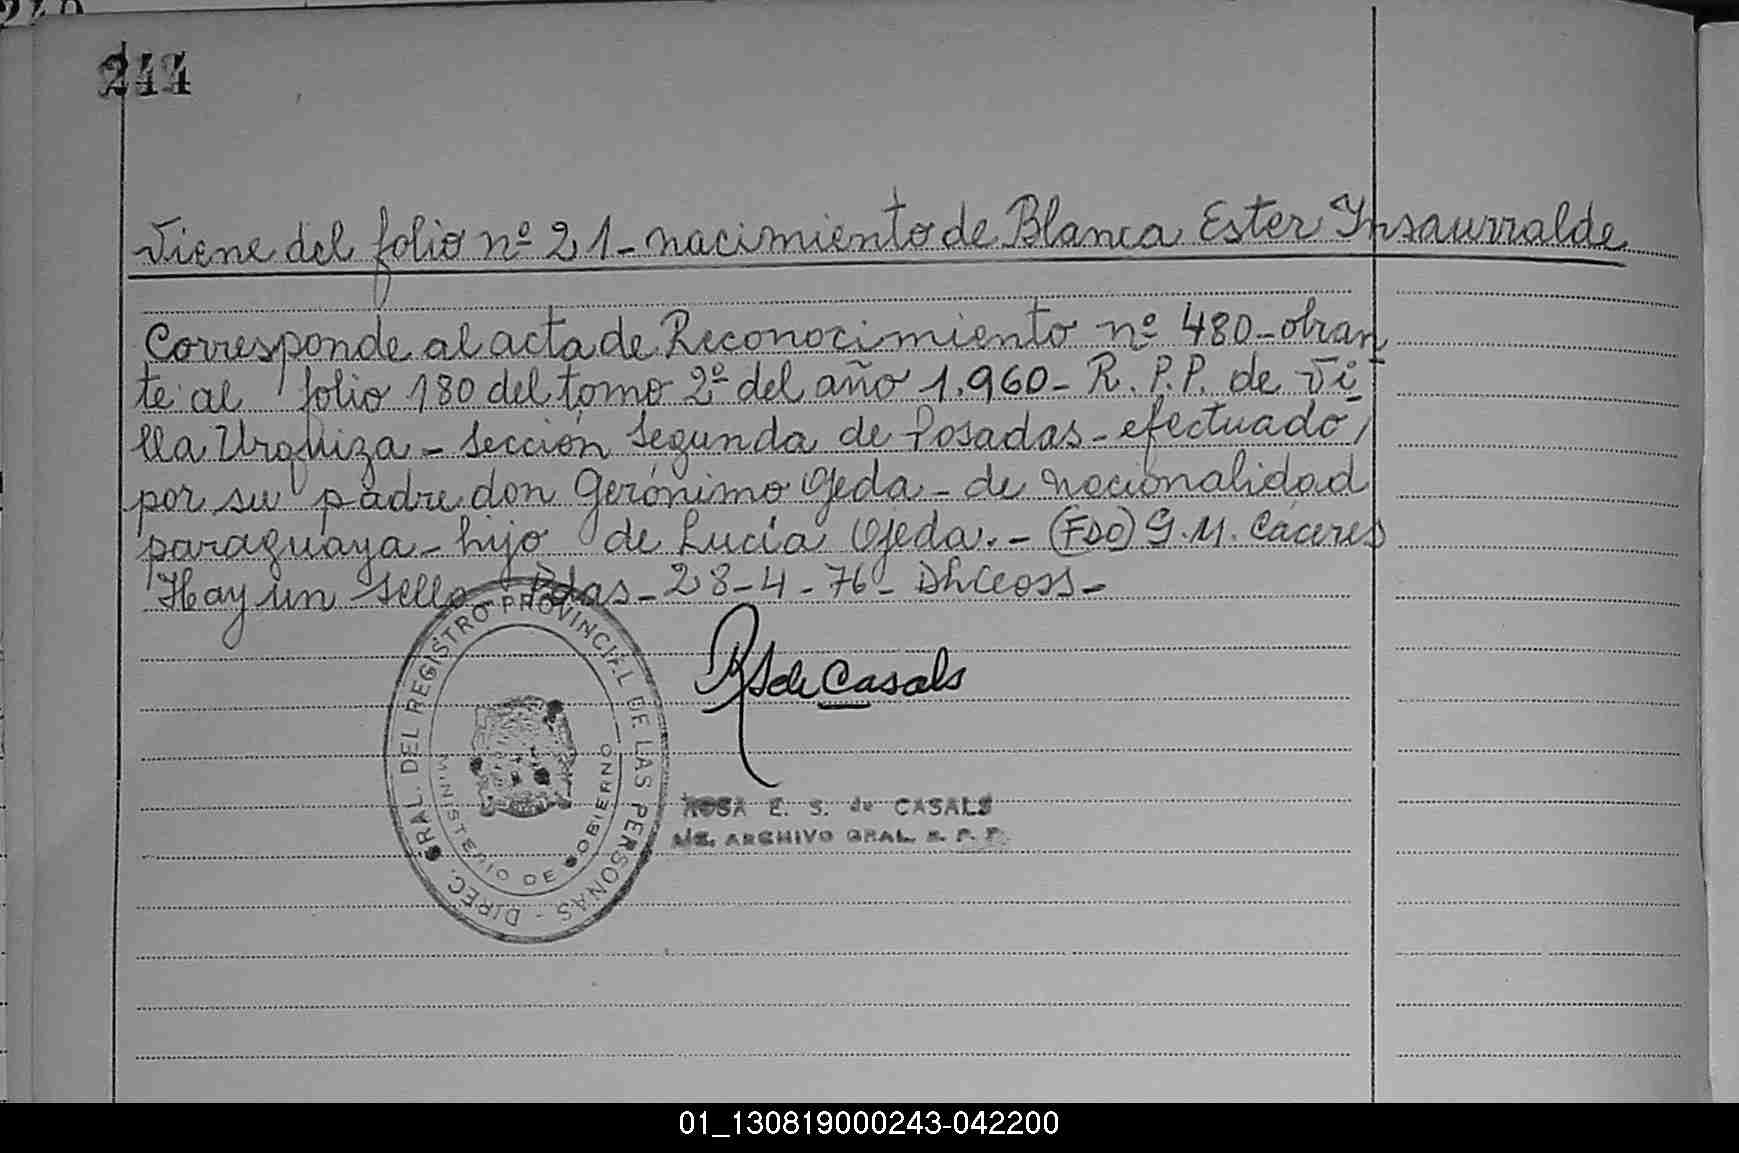 244
Viene del folio nº 21_ nacimiento de Blanca Ester Insaurralde
Corresponde al acta de Reconocimiento nº 480_ obran
te al folio 180 del tomo 2º del año 1.960_ R.P.P. de Vi
lla Urquiza_ Sección Segunda de Posadas_ efectuado,
por su padre don Gerónimo Ojeda_ de nacionalidad
paraguaya_ hijo de Lucía Ojeda._ (FDO) G.M. Cáceres
Hay un sello_ Pdas_28_4_76_
DIREC. GRAL. DEL REGISTRO PROVINCIAL DE LAS PERSONAS -
MINISTERIO DE GOBIERNO
RS de Casals
ROSA E. S. de CASALS
ARCHIVO GRAL. R. P. P.
01_130819000243-042200